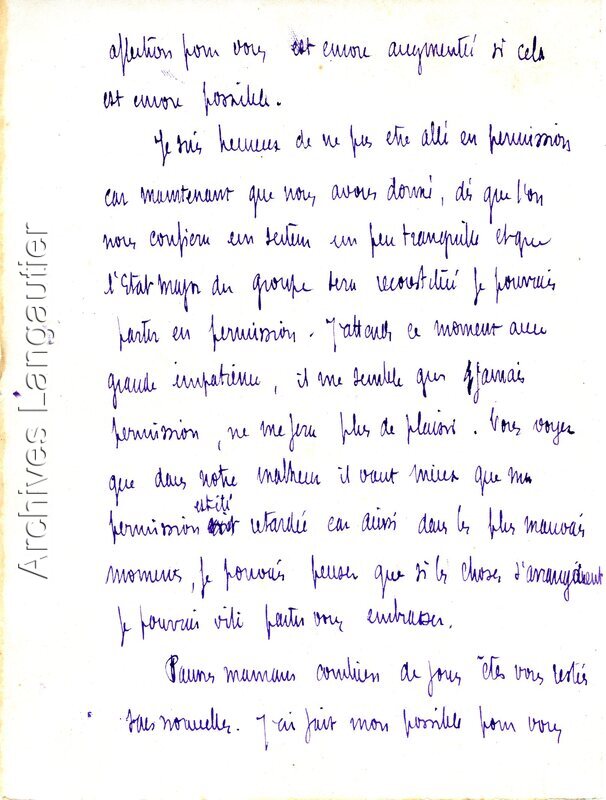 affection pour vous est encore augmenté si cela
est encore possible.
Je suis heureux de ne pas etre allé en permission
car maintenant que nous avons donné, dès que l'on
nous confiera un secteur un peu tranquille et que
l'Etat Major du groupe sera reconstitué je pourrais
partir en permission. J'attends ce moment avec
grande impatience, il me semble que jamais
permission, ne me fera plus de plaisir. Vous voyez
que dans notre malheur il vaut mieux que ma
permission ait été retardée car aussi dans les plus mauvais
moments, je pouvais penser que si les choses s'arrangeaient
je pourrais vite partir vous embrasser.
Pauvres mamans combien de jours êtes vous restés
sans nouvelles. J'ai fait mon possible pour vous
Archives Langautier